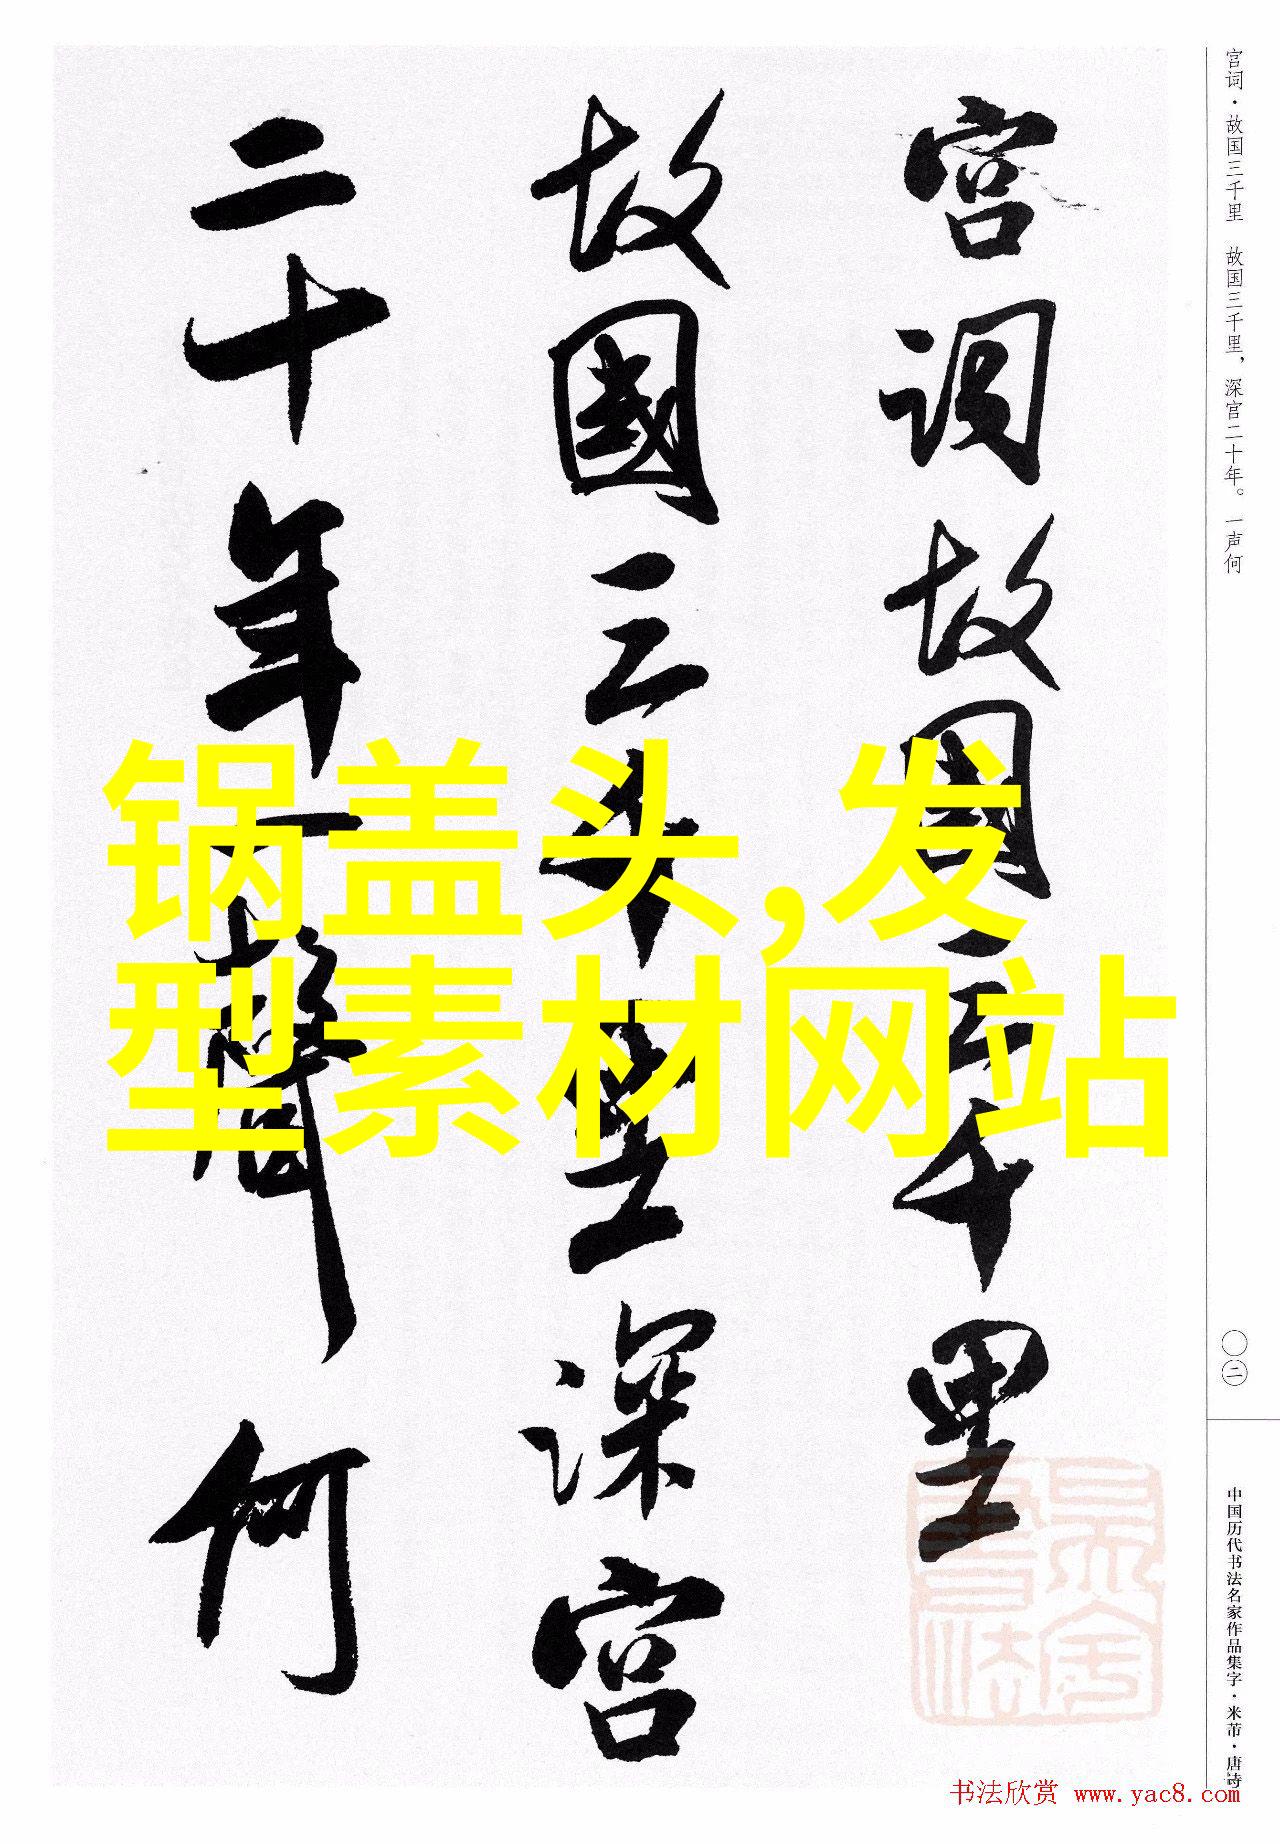 宫词故国三千里
故國三千里深宫
二十年一聲何
锅盖头,发
型素材网站
宫词·故国三千里 故国三千里，深宫二十年。一声何
〇二
中国历代书法名家作品集字·米芾·唐诗
书法欣赏 www.yac8.com